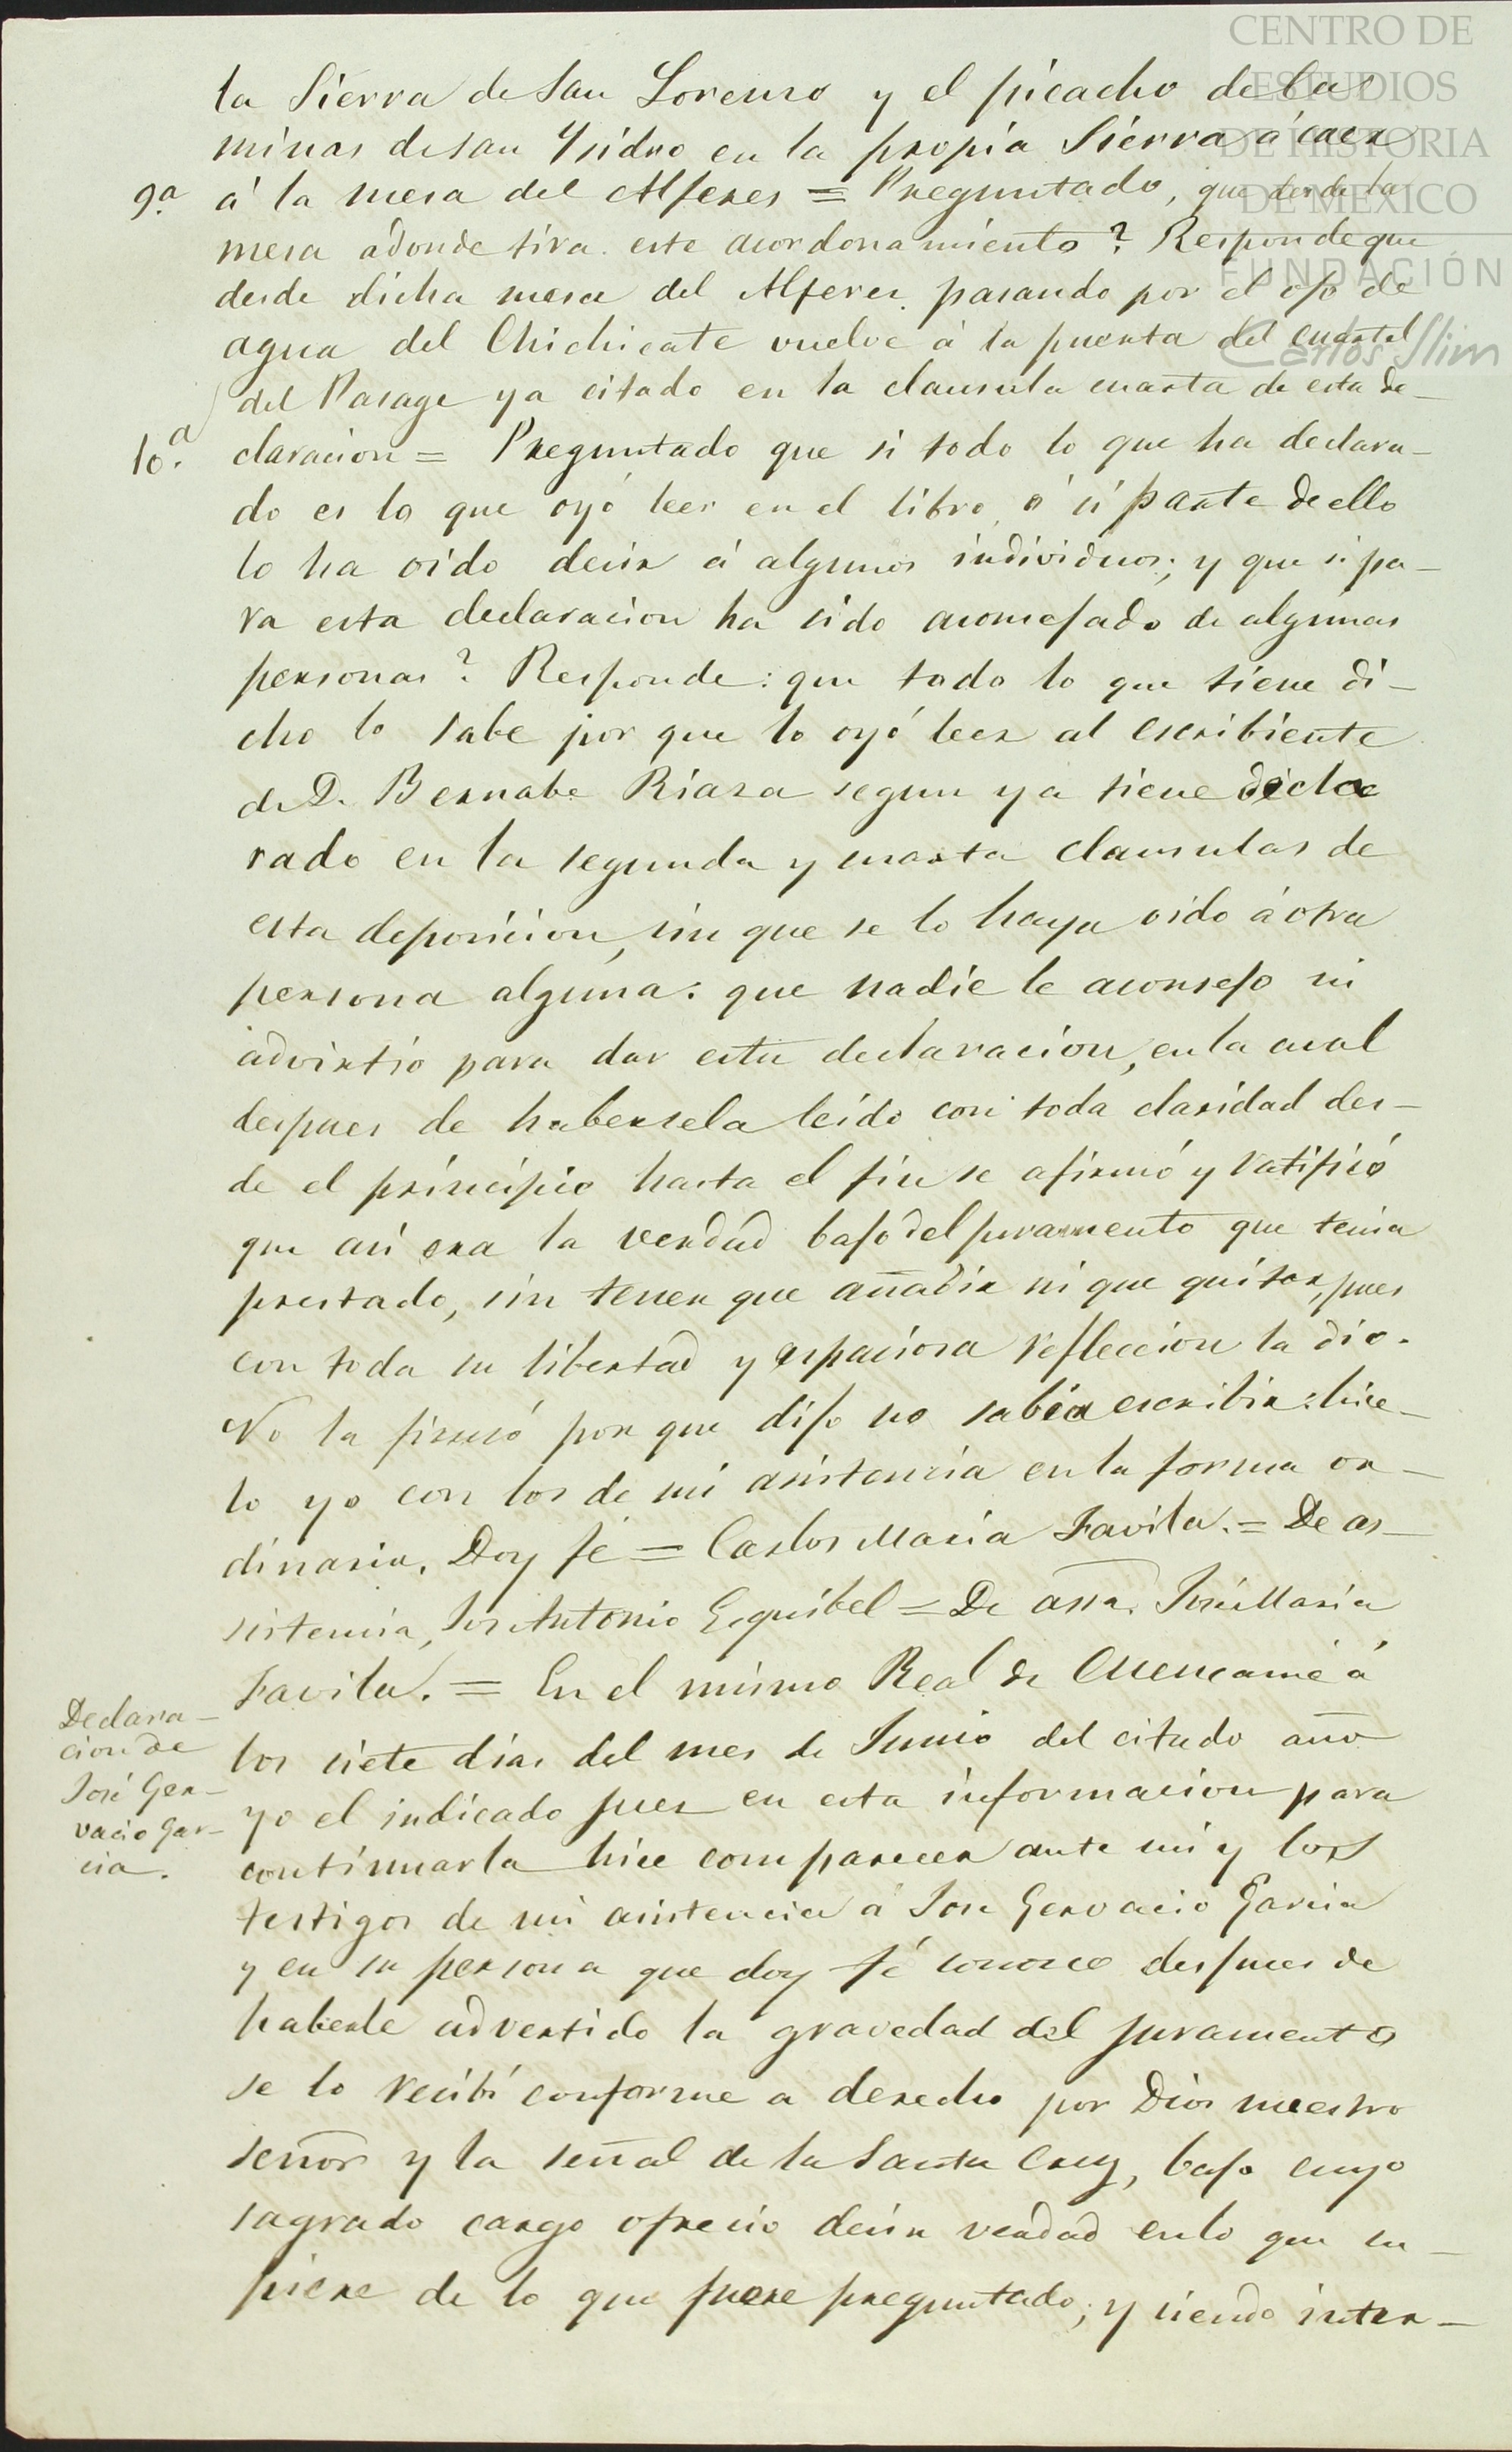 CENTRO DE
ESTUDIOS
DE HISTORIA
DE MEXICO
FUNDACIÓN
Carlos Slim
la Sierra de San Lorenso y el picacho de las
minas de san Ysidro en la propia Sierra á caer
9.a á la mesa del Alferes = Preguntado, que desde la
mesa adonde tira este acordonamiento? Responde que
desde dicha mesa del Alferes pasando por el ojo de
agua del Chichicate vuelve á la puerta del cuartel
del Pasage ya citado en la clausula cuarta de esta de-
10.a claracion = Preguntado que si todo lo que ha declara-
do es lo que oyó leer en el libro, ó si parte de ello
lo ha oido decir á algunos individuos; y que si pa-
ra esta declaracion ha sido aconsejado de algunas
personas? Responde: que todo lo que tiene di-
cho lo sabe por que lo oyó leer al escribiente
de D. Bernabe Riaza segun ya tiene decla
rado en la segunda y cuarta clausulas de
esta deposicion, sin que se lo haya oido á otra
persona alguna: que nadie le aconsejo ni
advirtio para dar esta declaracion, en la cual
despues de habersela leido con toda claridad des-
de el principio hasta el fin se afirmó y ratificó
que asi era la verdad bajo del juramento que tenia
prestado, sin tener que añadir ni que quitar, pues
con toda su libertad y espaciosa refleccion la dio.
No la firmó por que dijo no sabia escribir: hice-
lo yo con los de mi asistencia en la forma or-
dinaria. Doy fé = Carlos Maria Favila. = De as-
sistencia, José Antonio Esquibel = De assa. José Maria
Favila. = En el mismo Real de Cuencamé á
Declara-
cion de
José Ger-
vacio Gar-
cia.
los siete dias del mes de Junio del citado año
yo el indicado juez en esta informacion para
continuarla hice comparecer ante mi y los
testigos de mi asistencia á Jose Gervacio Garcia
y en su persona que doy fé conosco despues de
haberle advertido la gravedad del juramento
se lo recibí conforme a derecho por Dios nuestro
señor y la señal de la Santa Cruz, bajo cuyo
sagrado cargo ofrecio decir verdad en lo que su-
piere de lo que fuere preguntado; y siendo inter-